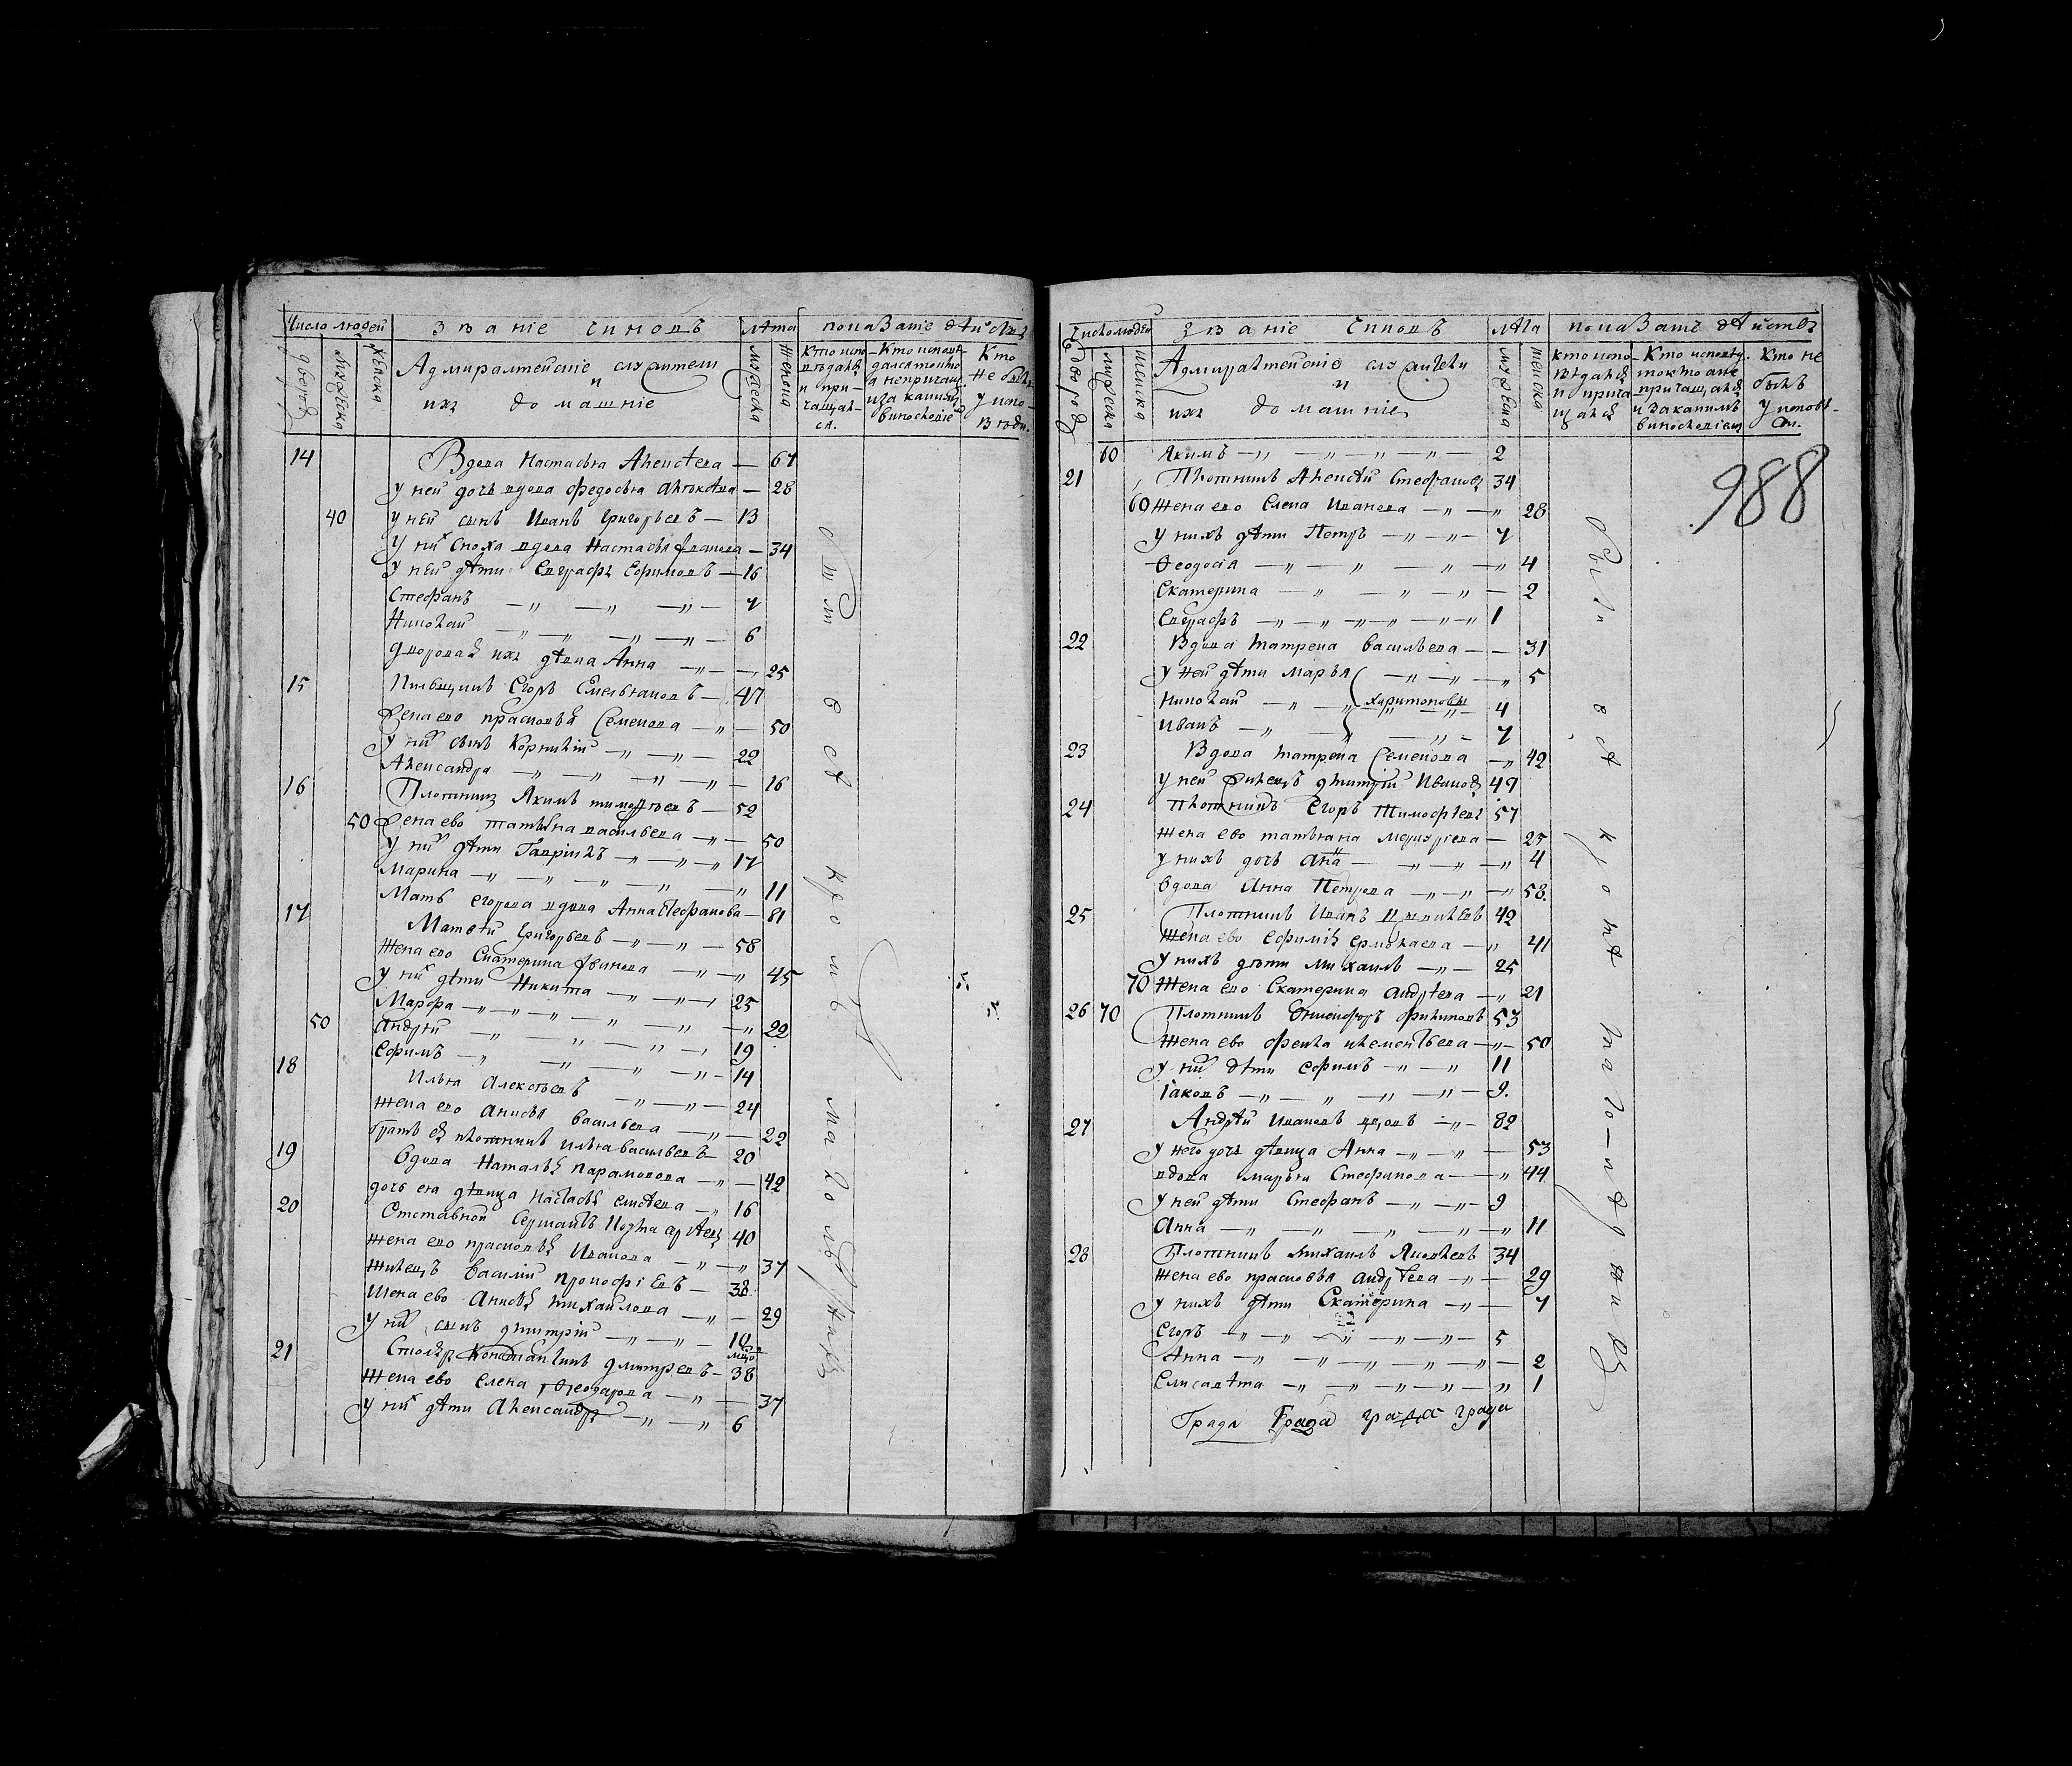 Число людей званіе чиновъ лѣта показаніе дѣйства
дворовъ мужеска женска Адмиралтейскіе служители и ихъ домашніе мужеска женска
кто исповѣдался и причащался.
Кто исповѣдался токмо а не причащ. и за какимъ винословіе
Кто не былъ у исповѣди.
14 Вдова Настасья Алексѣева — 67
у ней дочь вдова Федосья — 28
40 у ней сынъ Иванъ Григорьевъ — 13
у них сноха вдова Настасья Иванова — 34
у ней дѣти Евграфъ Ефимовъ — 16
Стефанъ —„— —„— —„— 7
Николай —„— —„— —„— 6
дворовая ихъ дѣвка Анна —„— 25
15 Пильщикъ Егоръ Емельяновъ — 47
Жена ево прасковья Семенова —„— 50
у них сынъ Корнилій —„— —„— 22
Александра —„— —„— —„— 16
16 Плотникъ Якимъ тимофѣевъ — 52
50 Жена ево татьяна васильева —„— 50
у них дѣти Гавріилъ —„— —„— 17
Марина —„— —„— —„— 11
Мать егорова вдова Анна Стефанова — 81
17 Матвѣй Григорьевъ —„— —„— 58
Жена ево Екатерина Иванова —„— 45
у них дѣти Никита —„— —„— 25
Марфа —„— —„— —„— 22
50 Андрѣй —„— —„— —„— 19
Ефимъ —„— —„— —„— 14
18 Илья Алексѣевъ —„— —„— 24
Жена ево Анисья Васильева —„— 22
братъ ея плотникъ илья васильевъ 20
19 Вдова Наталья парамонова —„— 42
дочь ея дѣвица Настасья —„ 16
20 Отставной 40
Жена ево прасковья Иванова —„— 37
Жилецъ Василій Прокофіевъ — 38
Жена ево Анисья михайлова —„— 29
у них сынъ дмитрій —„— —„— 10
21 Столяръ Константинъ дмитревъ — 38
Жена ево Елена Феодорова —„— 37
у них дѣти Александръ —„— —„ 6
были всѣ кромѣ малолѣтнихъ
Число людей званіе чиновъ лѣта показанъ дѣйства
дворовъ мужеска женска Адмиралтейскіе служители и ихъ домашніе мужеска женска
кто исповѣдался и причащался
Кто исповѣд. токмо а не причащался и за какимъ винословіемъ
Кто не былъ у исповѣди.
988
60 Якимъ —„ —„ —„ —„— 2
21 Плотникъ Алексѣй Стефановъ 34
60 Жена ево Елена Иванова —„ —„ 28
у нихъ дѣти Петръ —„—„— 7
Феодосія —„— „ —„ —„ 4
Екатерина — „ —„ —„— 2
Евграфъ —„ —„ —„ —„ —„ 1
22 Вдова матрена васильева — — 31
у ней дѣти марья —„ —„ —„ 5
Николай —„ —„ харитоновы 4
Иванъ —„ — —„ — 7
23 Вдова матрена Семенова —„ 42
у ней жилецъ дмитрій Ивановъ 49
24 Плотникъ Егоръ Тимофѣевъ 57
Жена ево татьяна — 25
у нихъ дочь Анна — —„ —„ —„ 4
вдова Анна Петрова —„—„ —„ 58.
25 Плотникъ Иванъ 42
Жена ево Ефимія Ермолаева —„ 41
у нихъ дѣти михаилъ —„— 25
70 Жена ево Екатерина андрѣева —„ 21
26 70 Плотникъ филиповъ 53
Жена ево фекла —„— 50
у них дѣти ефимъ —„ —„ 11
Іаковъ —„ —„ —„ —„— 9.
27 Андрѣй Ивановъ вдовъ —„— 82
у него дочь дѣвица Анна —„ —„ — 53
вдова марья Стефанова —„ 44
у ней дѣти Стефанъ —„ —„— 9
Анна —„ —„ —„ —„ —„ 11
28 Плотникъ Михаилъ Яковлевъ 34
Жена ево прасковья андрѣева —„— 29
у нихъ дѣти Екатерина —„— 7
Егоръ —„ —„ —„ —„ —„— 5
Анна —„ —„ —„ —„ —„— 2
Елисавѣта —„ —„ —„ —„— „ 1
Града Града града града
были всѣ кромѣ мало-лѣтнихъ